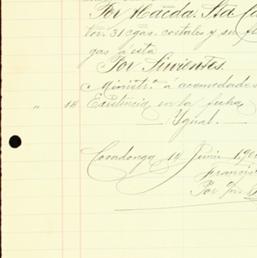 Por Hacda. Sta. C
ton 31 cgas. costales y su fl
gas á esta
Por Sirvientes.
Ministn. á acomodados
" 18 Existencia en la fecha
Ygual.
Covadonga 18 Junio 190
Francis
Por p.